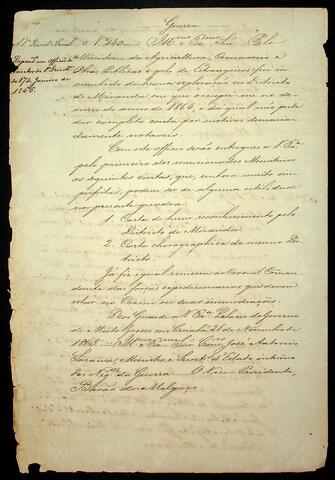 Guerra
1.ª Direct. Geral. N.º 240. Ill.mo e Ex.mo Snr. Pelo
Respond. em officio do
Director da 1.ª Direct.
de 17 de Janeiro de
1866.
Ministerio da Agricultura, Commercio e
Obras Publicas e pelo de Estrangeiros fui in-
cumbido de huma exploração no Districto
de Miranda, em que occupei-me no de-
curso do anno de 1864, e da qual não pude
dar completa conta por motivos demasia-
damente notaveis.
Com este officio serão entregues a V. Ex.ª
pelo primeiro dos mencionados Ministerios
as seguintes cartas, que, embora muito im-
perfeitas, podem ser de alguma utilidade
na presente quadra.
1. Carta de hum reconhecimento pelo
Districto de Miranda.
2. Carta chorographica do mesmo Dis-
tricto.
Já fiz igual remessa ao Coronel Coman-
dante das forças expedicionarias que devem
estar no Coxim ou suas immediações.
Deos Guarde a V. Ex.ª Palacio do Governo
de Mato Grosso em Cuiabá 25 de Novembro de
1865. Ill.mo e Ex.mo Snr. Cons.º José Antonio
Saraiva, Ministro e Secret.º d'Estado interino
dos Neg.os da Guerra. O Vice-Presidente,
Barão de Melgaço.